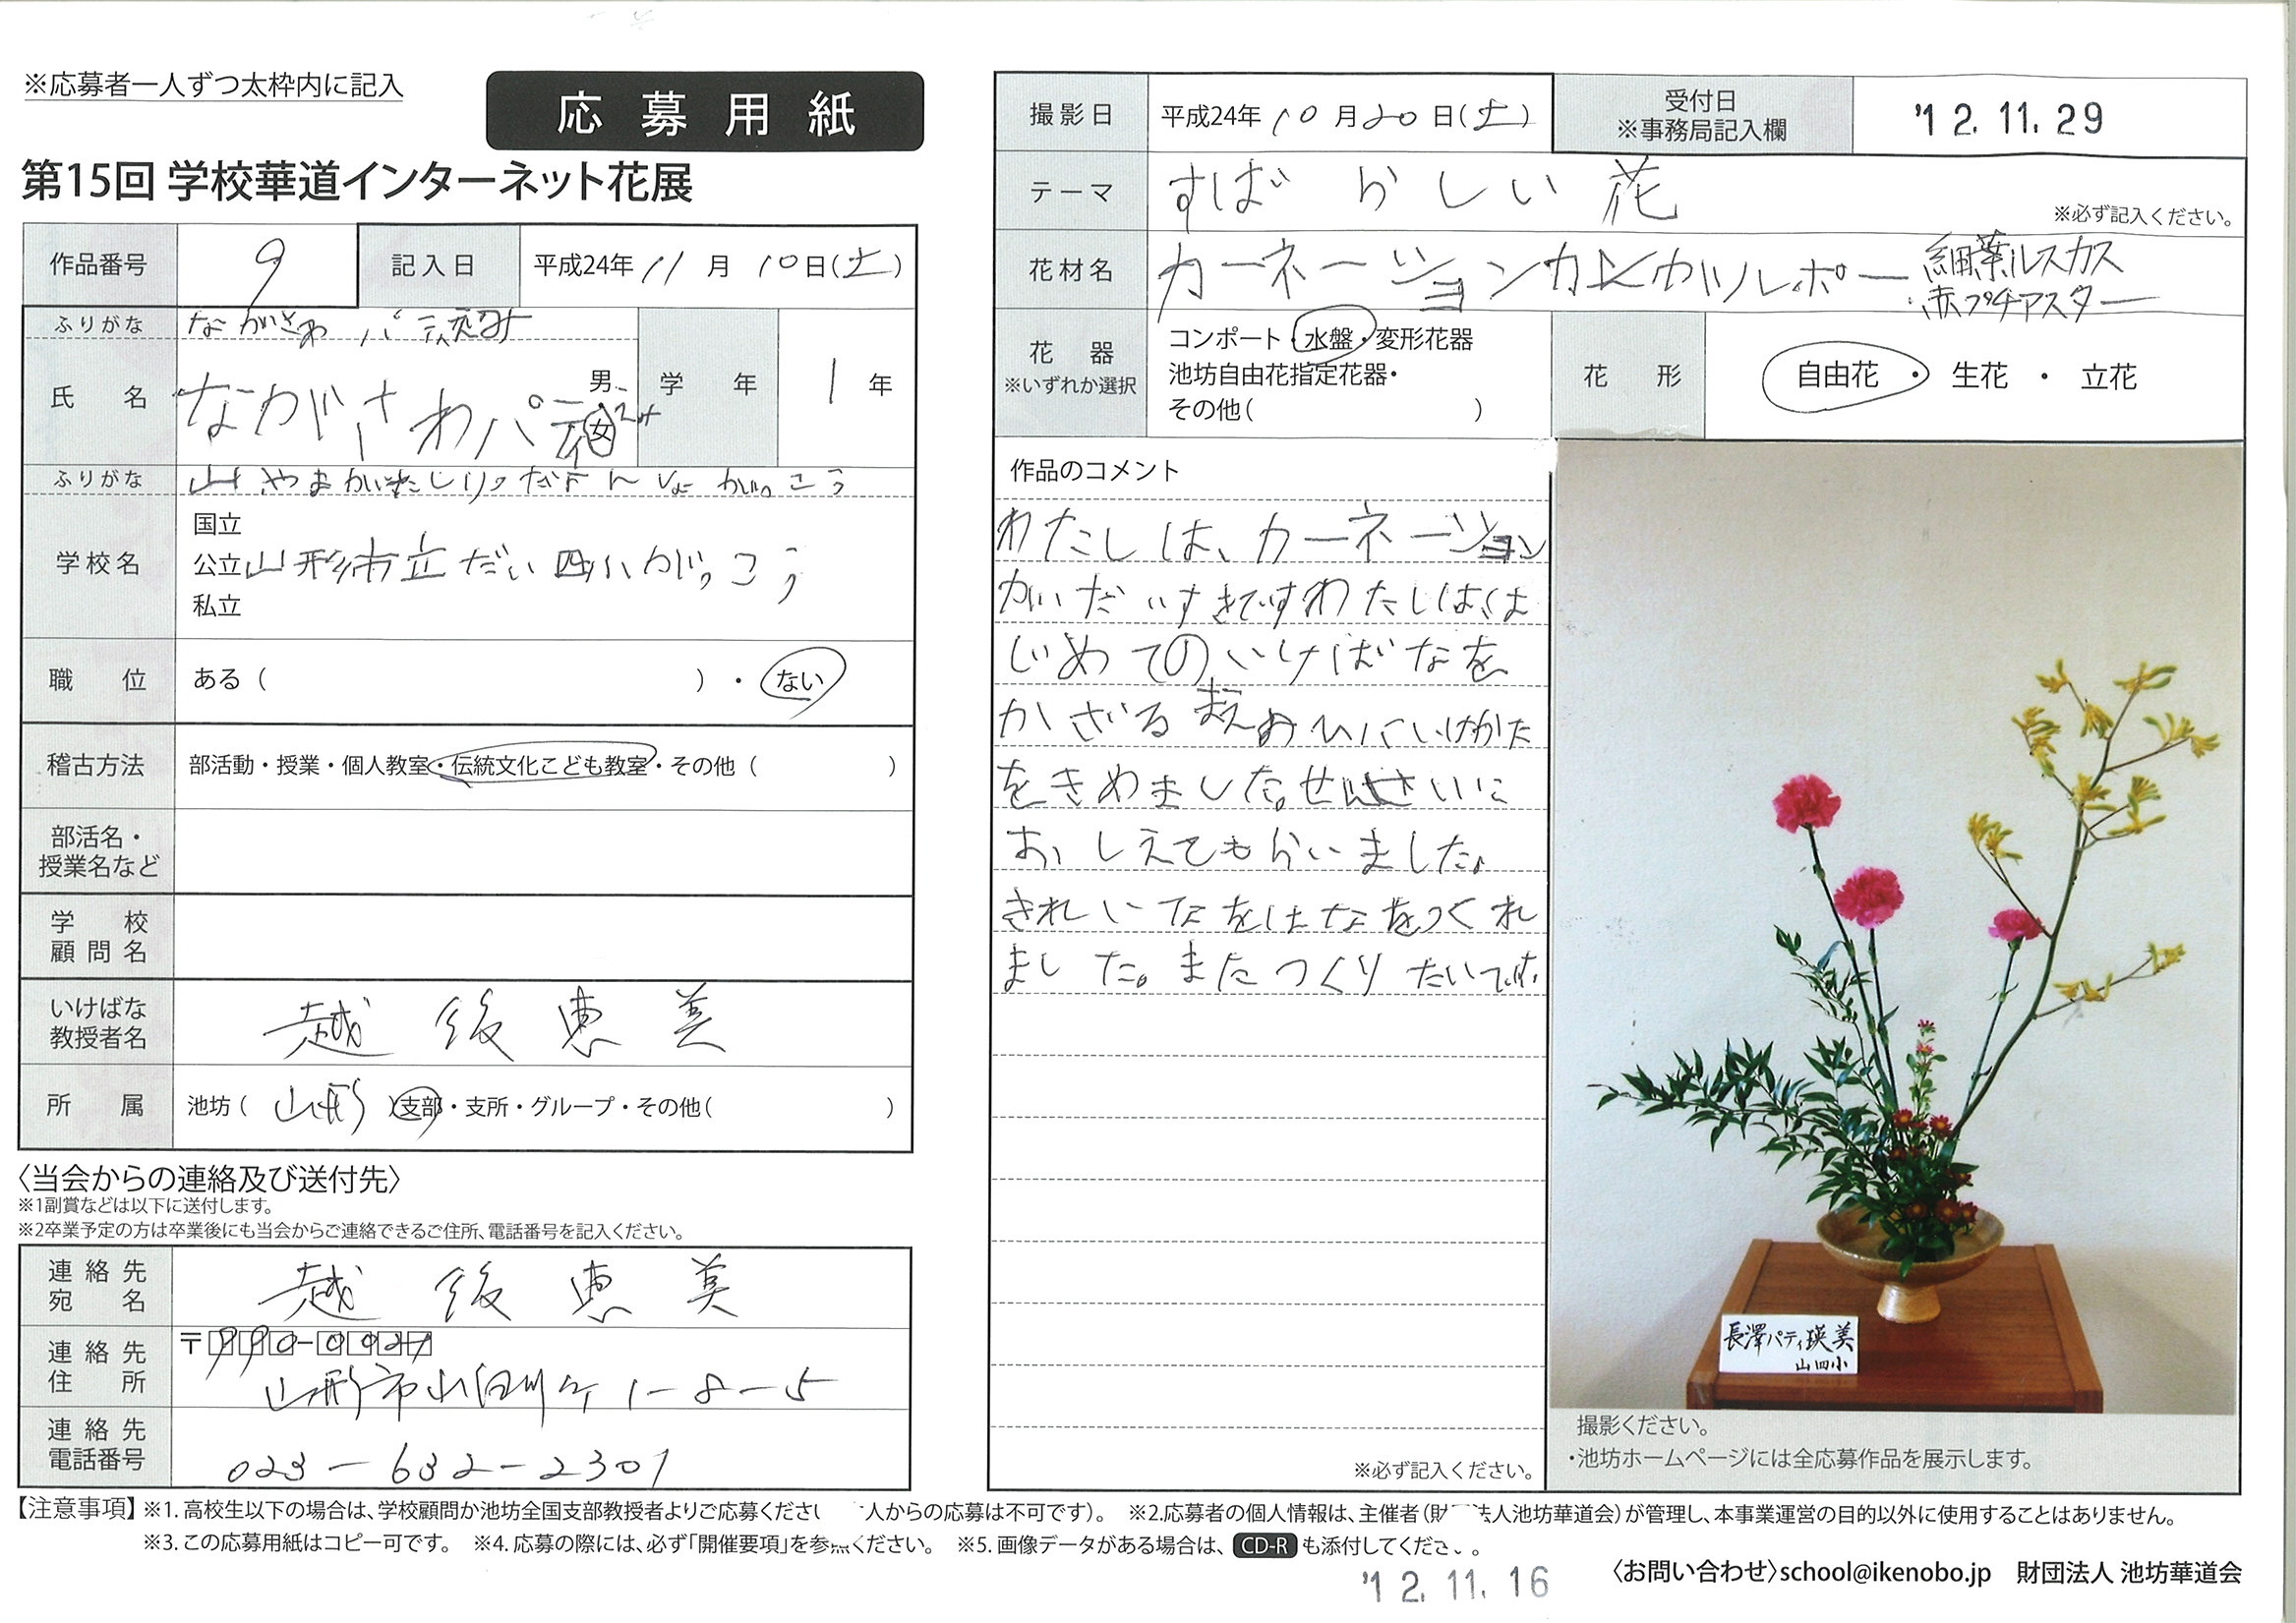 ※応募者一人ずつ太枠内に記入
応募用紙
第15回 学校華道インターネット花展
作品番号 9 記入日 平成24年 11月 10日(土)
ふりがな ながさわ パ
氏名 ながさわパ 男・女
学年 1年
ふりがな
学校名 国立
公立 山形市立だい四小がっこう
私立
職位 ある( )・ない
稽古方法 部活動・授業・個人教室・伝統文化こども教室・その他( )
部活名・
授業名など
学校
顧問名
いけばな
教授者名 越後恵美
所属 池坊(山形)支部・支所・グループ・その他( )
〈当会からの連絡及び送付先〉
※1副賞などは以下に送付します。
※2卒業予定の方は卒業後にも当会からご連絡できるご住所、電話番号を記入ください。
連絡先
宛名 越後恵美
連絡先
住所 〒990-0027
山形市小白川町 1-8-5
連絡先
電話番号 023-632-2301
撮影日 平成24年 10月20日(土)
受付日
※事務局記入欄 '12.11.29
テーマ すばらしい花
※必ず記入ください。
花材名 カーネーション カンガルーポー 細葉ルスカス
赤プチアスター
花器
※いずれか選択
コンポート・水盤・変形花器
池坊自由花指定花器・
その他( )
花形 自由花・生花・立花
作品のコメント
わたしは、カーネーション
がだいすきですわたしははは
じめてのいけばなを
かざるまえのひにいけかた
をきめました。せんせいに
おしえてもらいました。
きれいなをはなをつくれ
ました。またつくりたいです。
※必ず記入ください。
長澤パティ瑛美
山四小
撮影ください。
・池坊ホームページには全応募作品を展示します。
【注意事項】※1. 高校生以下の場合は、学校顧問か池坊全国支部教授者よりご応募くださ 人からの応募は不可です)。 ※2.応募者の個人情報は、主催者(財 法人池坊華道会)が管理し、本事業運営の目的以外に使用することはありません。
※3. この応募用紙はコピー可です。 ※4. 応募の際には、必ず「開催要項」を参 ください。 ※5. 画像データがある場合は、CD-Rも添付してくださ 。
'12.11.16
〈お問い合わせ〉school@ikenobo.jp 財団法人 池坊華道会